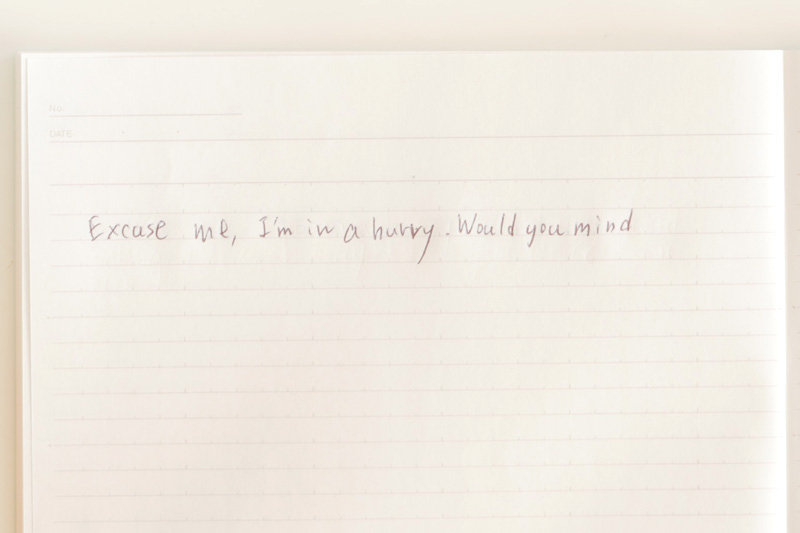 No.
DATE
Excuse me, I'm in a hurry. Would you mind